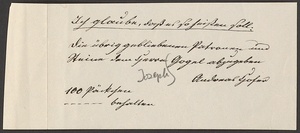 Ich glaube, daß es so heißen soll:
Die übrig gebliebenen Patronen und
Steine dem Herrn Gogel abzugeben
Joseph
Andreas Hofer
100 Päckchen
------ behalten